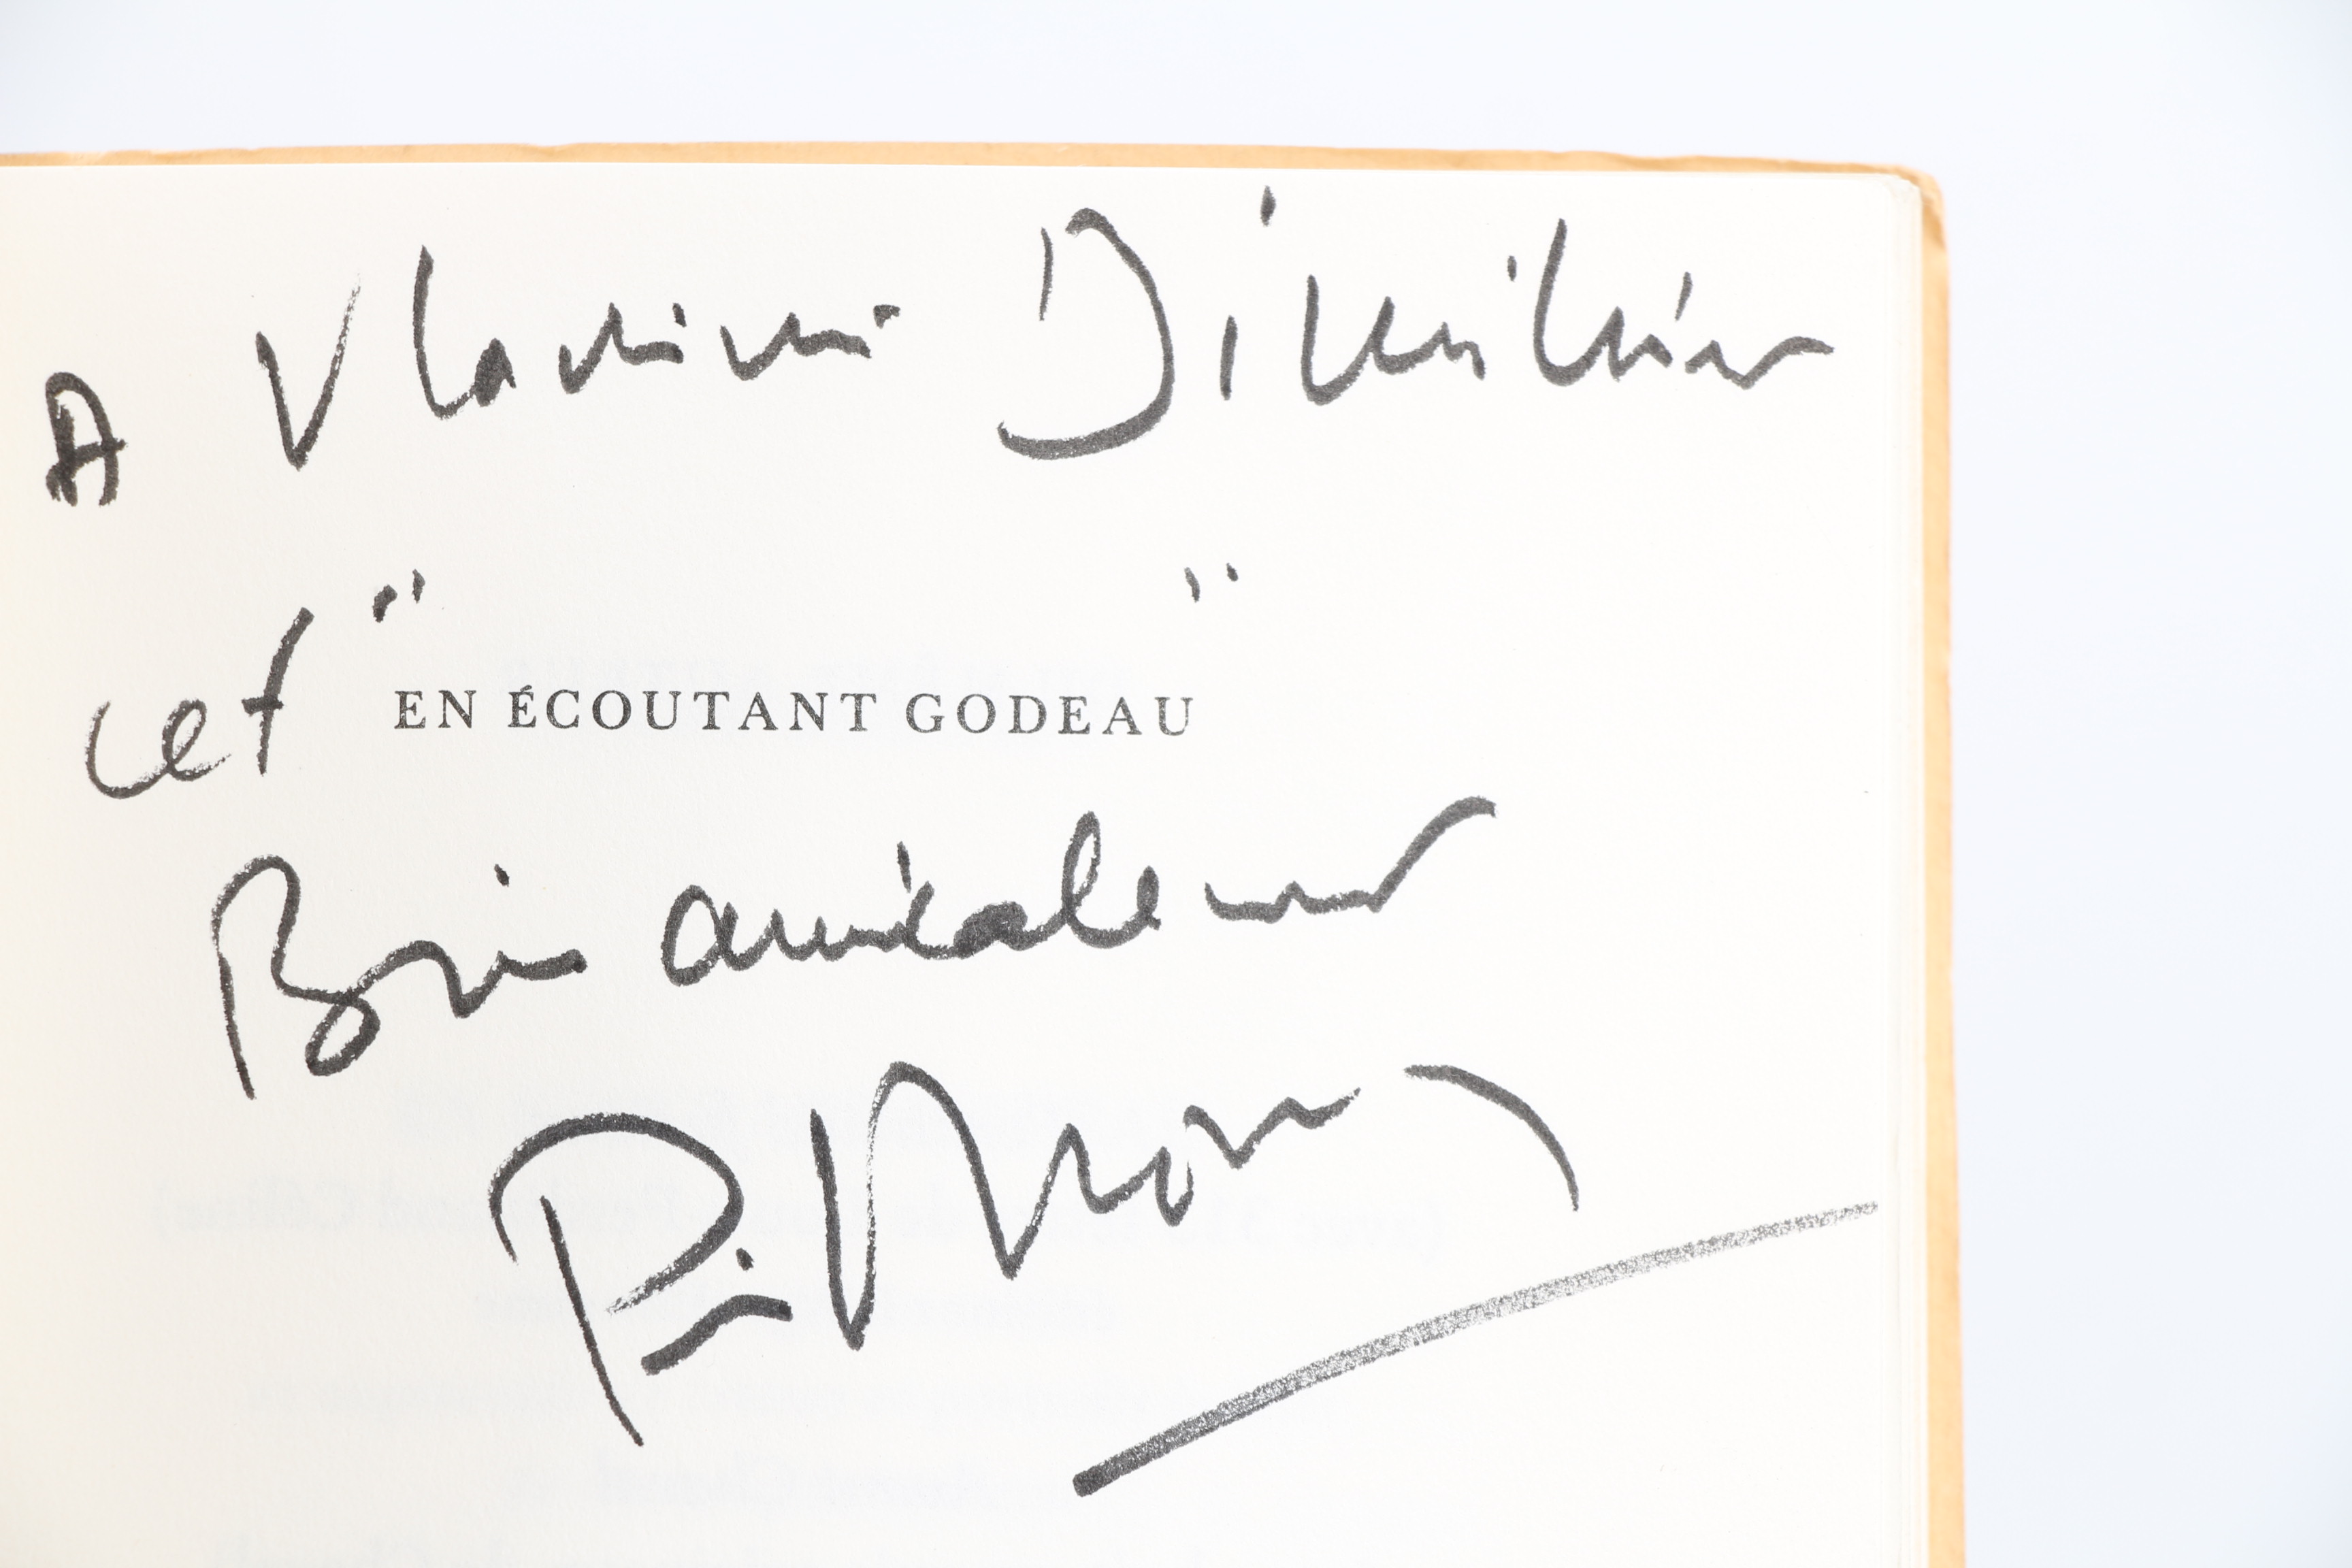 A Vladimir Dimitrijević
cet "EN ÉCOUTANT GODEAU"
Bien amicalement